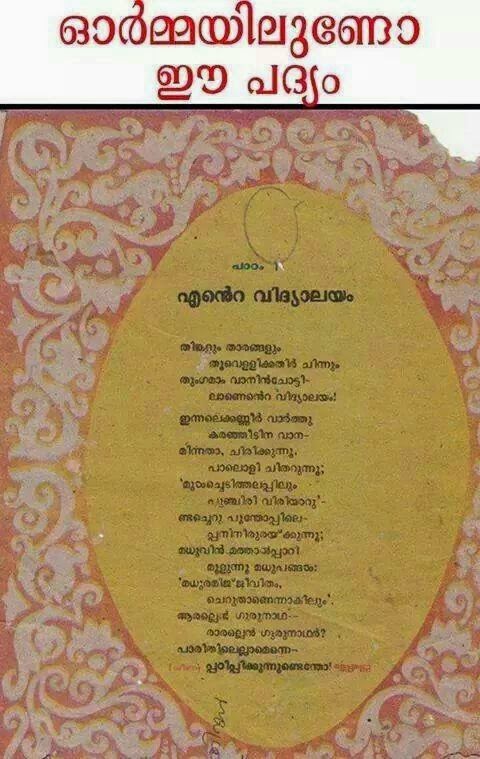 ഓർമ്മയിലുണോ
ഈ പദ്യം
പാഠം 1
എൻെറ വിദ്യാലയം
തിങ്കളും താരങ്ങളും
തൂവെള്ളിക്കതിർ ചിന്നും
തുംഗമാം വാനിൻചോട്ടി-
ലാണെൻെറ വിദ്യാലയം!
ഇന്നലെക്കണ്ണീർ വാർത്തു
കരഞ്ഞീടിന വാന-
മിന്നതാ, ചിരിക്കുന്നൂ,
പാലൊളി ചിതറുന്നൂ;
'മുൾച്ചെടിത്തലപ്പിലും
പുഞ്ചിരി വിരിയാറു'-
ണ്ടച്ചെറു പൂന്തോപ്പിലെ-
പ്പനിനീരുരയ്ക്കുന്നൂ;
മധുവിൻ മത്താൽപ്പാറി
മൂളുന്നൂ മധുപങ്ങൾ:
'മധുരമിജ്ജീവിതം,
ചെറുതാണെന്നാകിലും'.
ആരല്ലെൻ ഗുരുനാഥ-
രാരല്ലെൻ ഗുരുനാഥർ?
പാരിതിലെല്ലാമെന്നെ-
പ്പഠിപ്പിക്കുന്നുണ്ടെന്തോ!